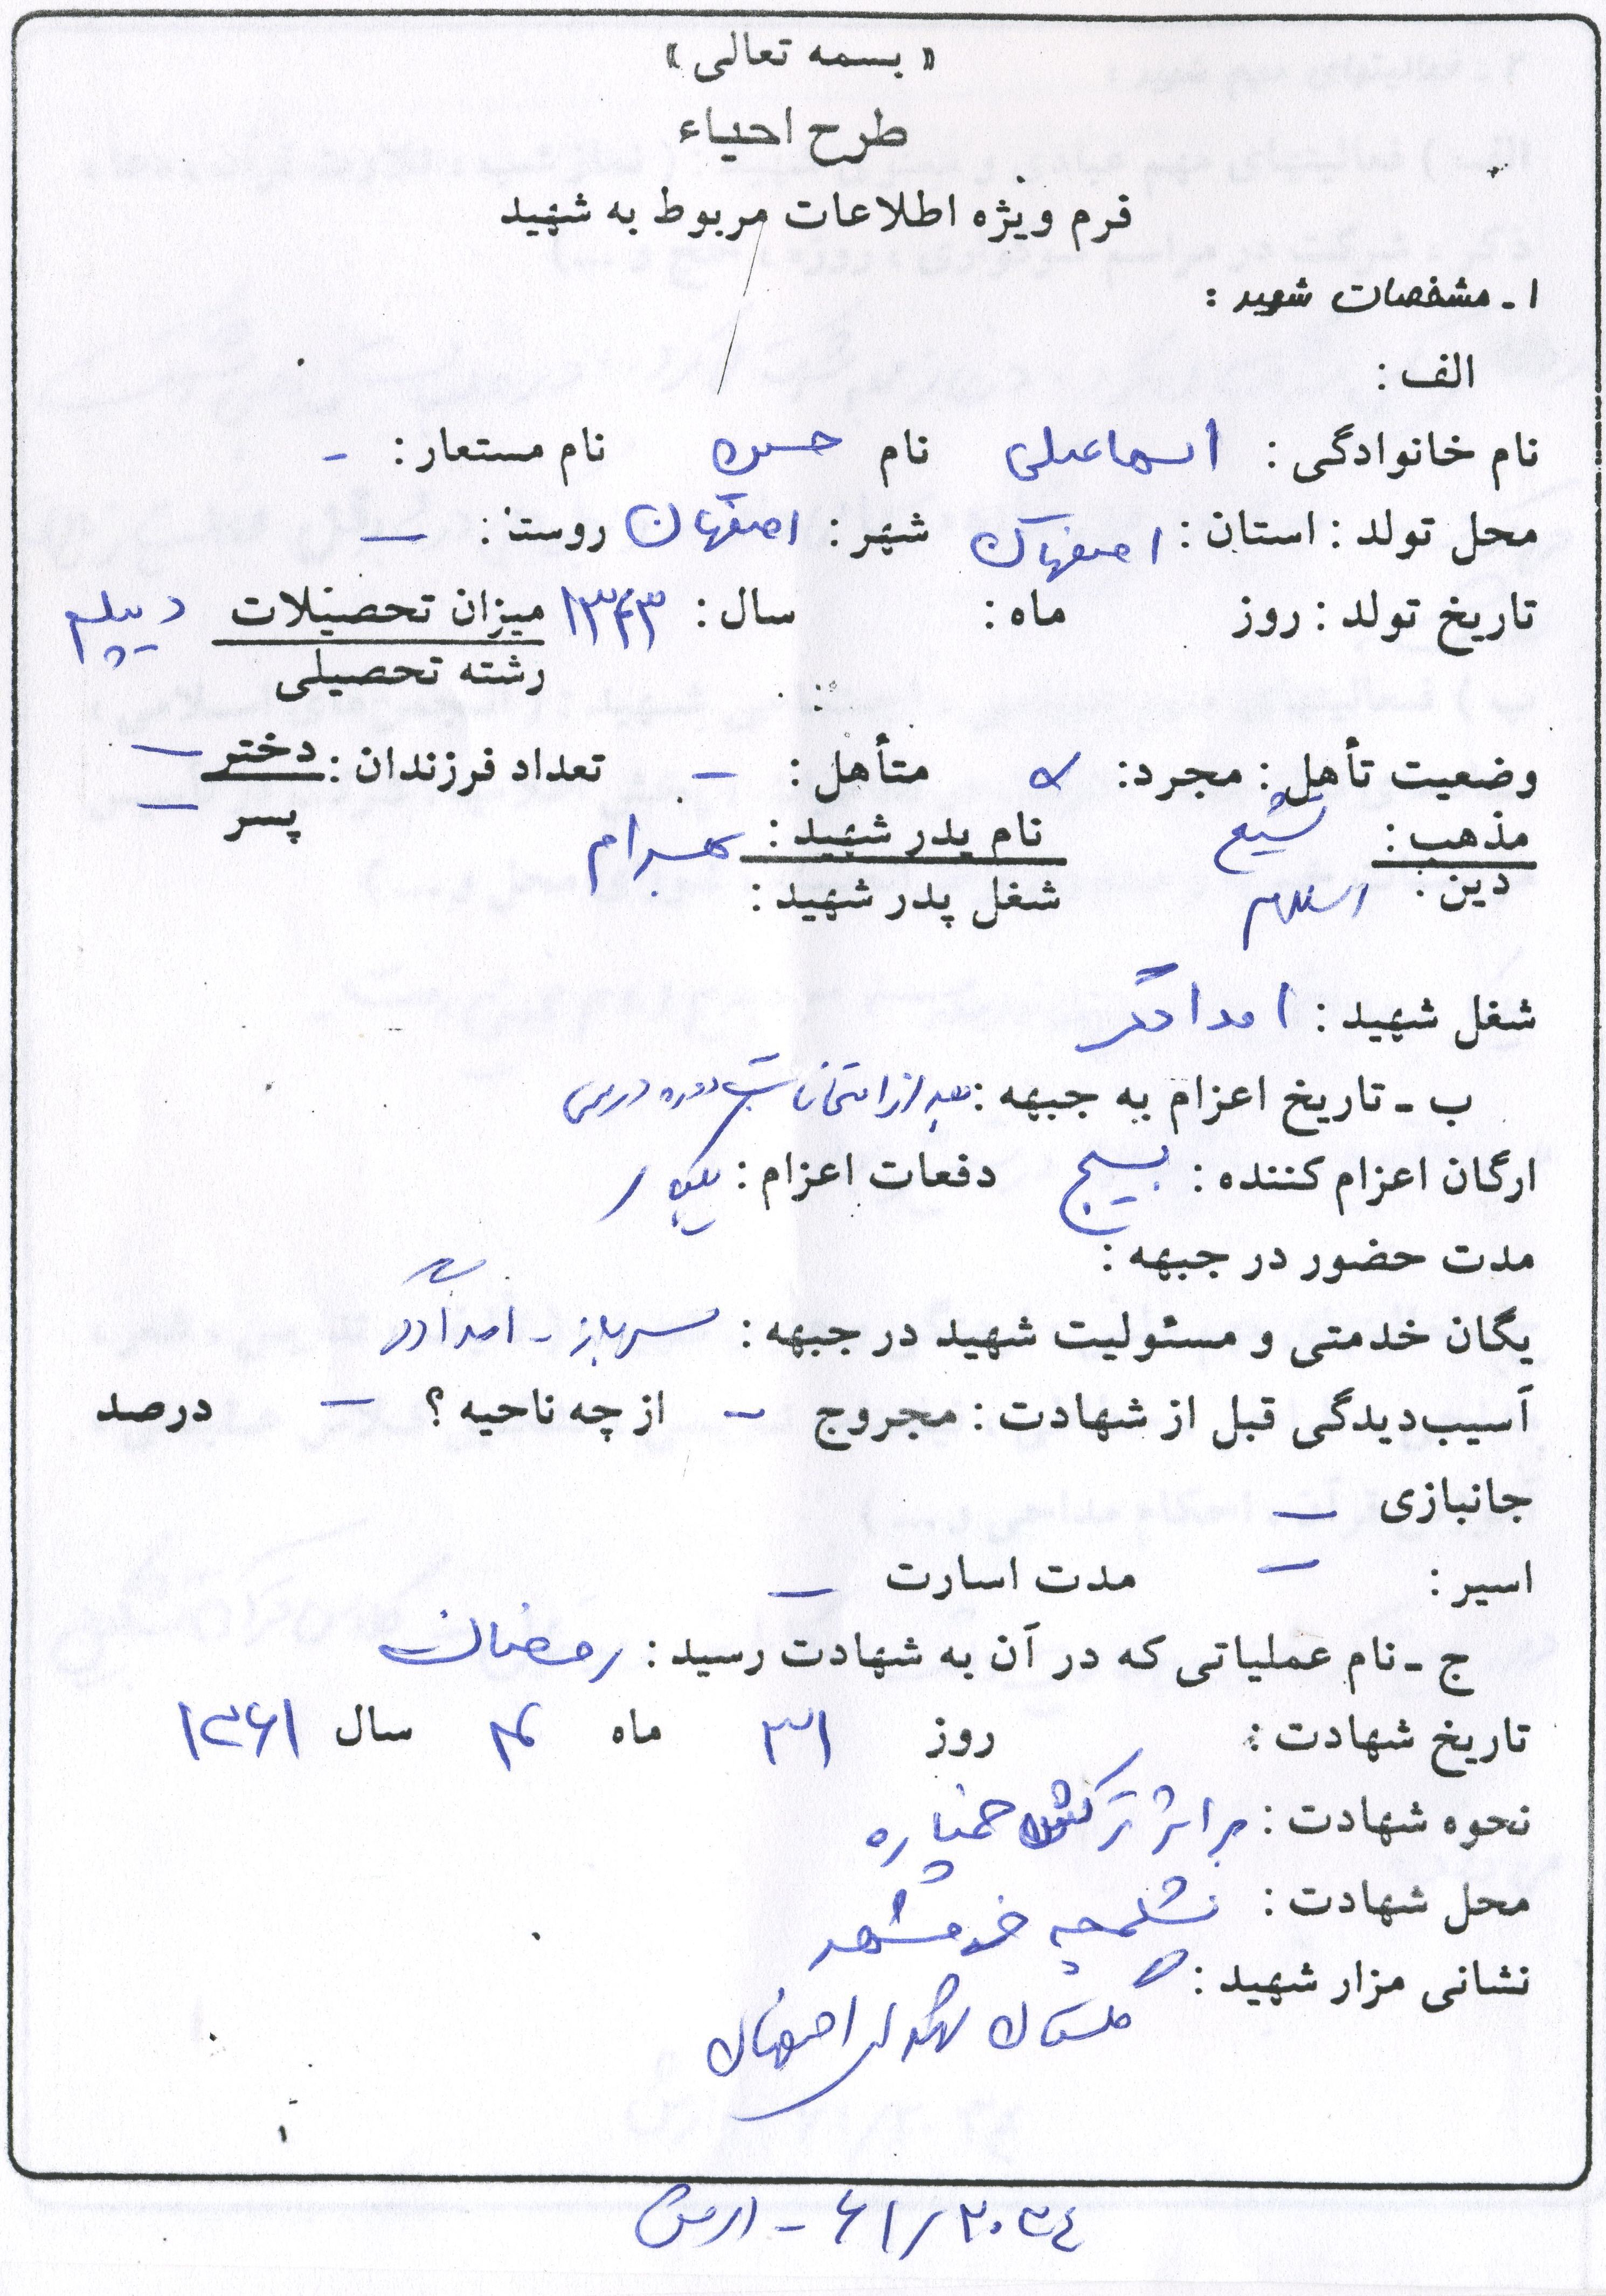 « بسمه تعالی »
طرح احیاء
فرم ویژه اطلاعات مربوط به شهید
۱ ـ مشخصات شهید :
الف :
نام خانوادگی : اسماعیلی نام حسین نام مستعار : -
محل تولد : استان : اصفهان شهر : اصفهان روستا : —
تاریخ تولد : روز ماه : سال : ۱۳۴۳ میزان تحصیلات دیپلم
رشته تحصیلی
وضعیت تأهل : مجرد : متأهل : - تعداد فرزندان : دختر —
پسر —
مذهب : تشیع نام پدر شهید : بهرام
دین : اسلام شغل پدر شهید :
شغل شهید : امدادگر
ب ـ تاریخ اعزام به جبهه : بعد از امتحانات دوره درسی
ارگان اعزام کننده : بسیج دفعات اعزام : یکبار
مدت حضور در جبهه :
یگان خدمتی و مسئولیت شهید در جبهه : سرباز - امدادگر
آسیب‌دیدگی قبل از شهادت : مجروح - از چه ناحیه ؟ — درصد
جانبازی —
اسیر : — مدت اسارت —
ج ـ نام عملیاتی که در آن به شهادت رسید : رمضان
تاریخ شهادت : روز ۳۱ ماه ۴ سال ۱۳۶۱
نحوه شهادت : بر اثر ترکش خمپاره
محل شهادت : شلمچه خرمشهر
نشانی مزار شهید :
گلستان شهدای اصفهان
۶۱/۲۰۳۴ -